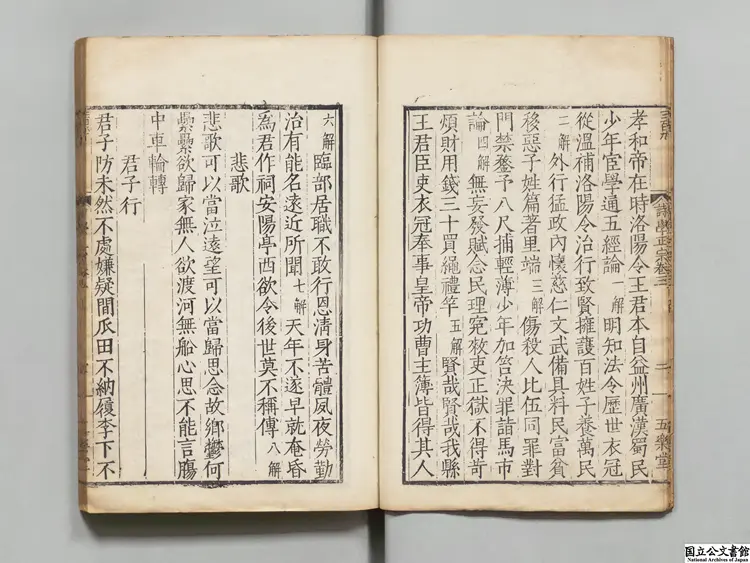 孝和帝在時洛陽令王君本自益州廣漢蜀民
少年宦學通五經論一解明知法令歷世衣冠
從溫補洛陽令治行致賢擁護百姓子養萬民
二解外行猛政內懷慈仁文武備具料民富貧
移惡子姓篇著里端三解傷殺人比伍同罪對
門禁鍪予八尺捕輕薄少年加笞決罪詣馬市
論四解無妄發賦念民理冤敕吏正獄不得苛
煩財用錢三十買繩禮竿五解賢哉賢哉我縣
王君臣吏衣冠奉事皇帝功曹主簿皆得其人
詩學正宗卷三
五樂堂
六解臨部居職不敢行恩清身苦體夙夜勞勤
治有能名遠近所聞七解天年不遂早就奄昏
為君作祠安陽亭西欲令後世莫不稱傳八解
悲歌
悲歌可以當泣遠望可以當歸思念故鄉鬱何
纍纍欲歸家無人欲渡河無船心思不能言腸
中車輪轉
君子行
君子防未然不處嫌疑間瓜田不納履李下不
国立公文書館
National Archives of Japan